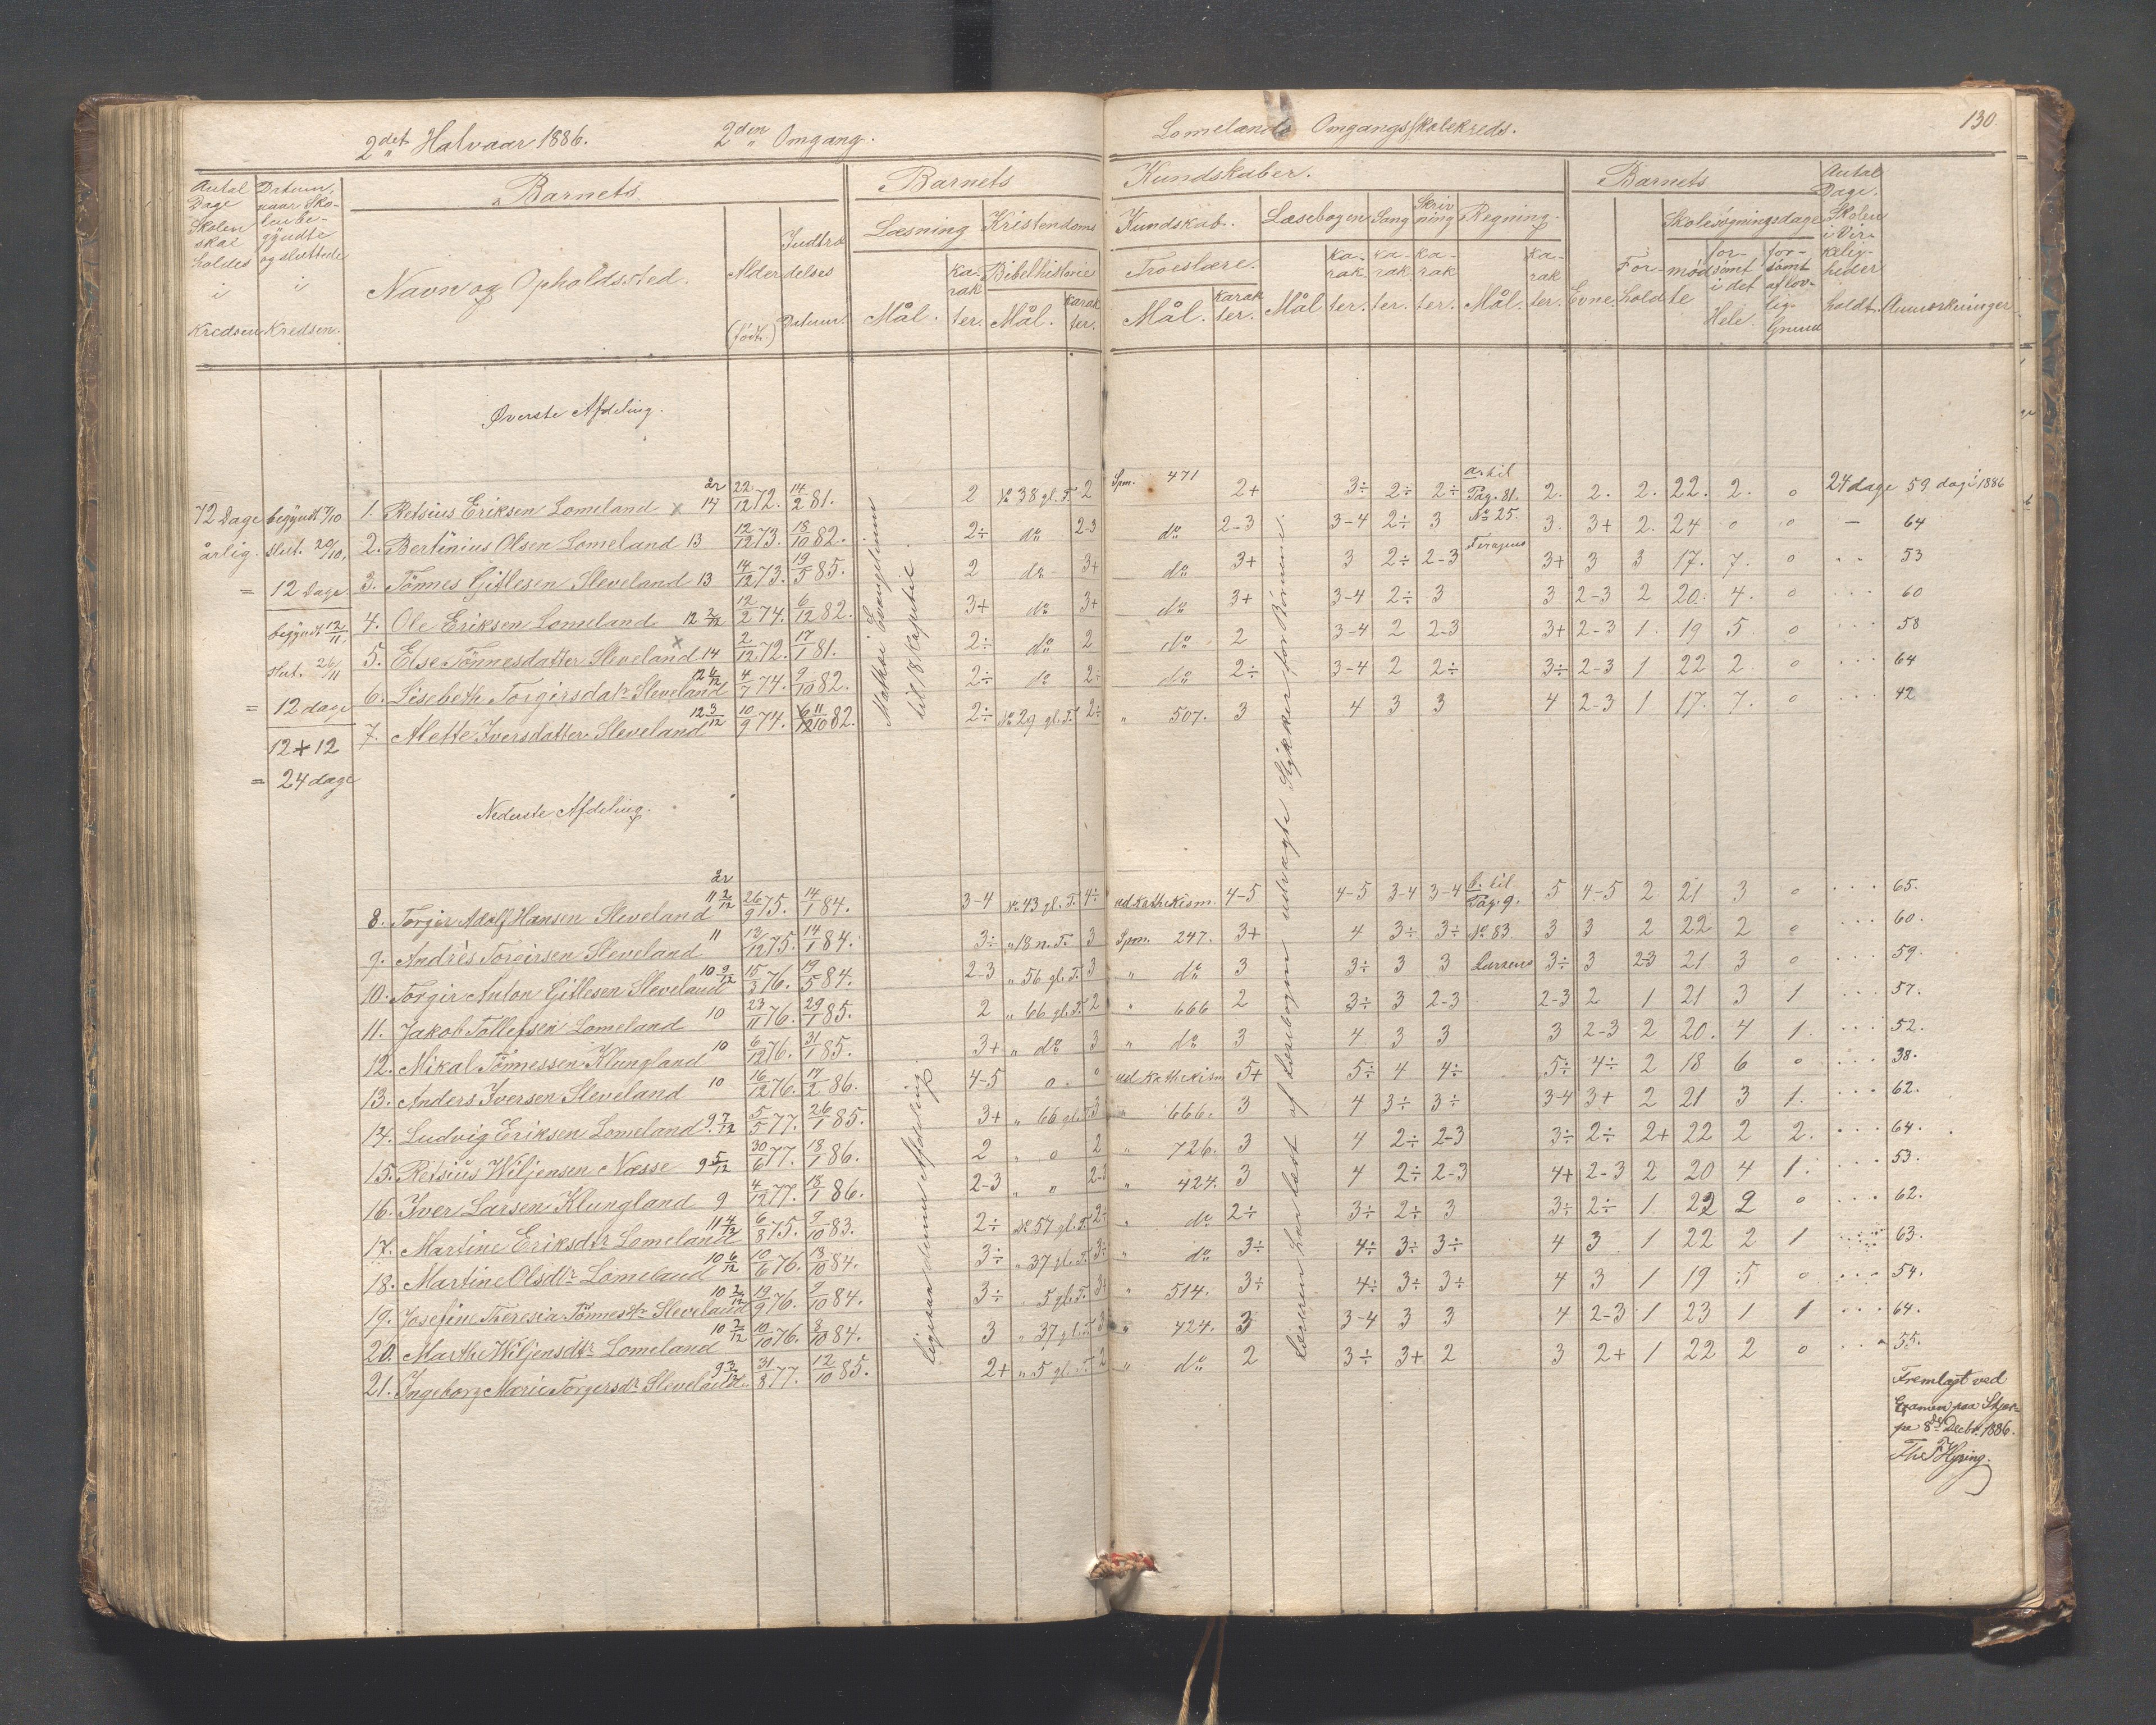 2det Halvaar 1886. 2den Omgang.
Lomelands Omgangsskolekreds. 130.
Antal Dage Skolen skal holdes i Kredsen
Datum, naar Skolen begyndte og sluttede i Kredsen.
Barnets
Navn og Opholdssted. Alder (født.) Indtrædelses Datum.
Barnets Kundskaber.
Læsning Mål. Karakter.
Kristendoms Kundskab.
Bibelhistorie Mål. Karakter.
Troeslære. Mål. Karakter.
Læsebogen Mål Karakter.
Sang Karakter.
Skrivning Karakter.
Regning. Mål. Karakter.
Barnets
Evne. Forhold
Skolesøgningsdage
mødte forsømt i det Hele. forsømt af lovlig Grund
Antal Dage. Skolen i Virkeligheden holdt.
Anmærkninger
Øverste Afdeling.
72 Dage årlig.
begyndt 7/10 slut. 20/10. = 12 Dage
begyndt 12/11. slut. 26/11 = 12 dage
12 + 12 = 24 dage
Mathæi Evangelium til 18 Kapitel
Læreren har læst af Læsebogen udvalgte Stykker for Børnene.
1. Retsius Eriksen Lomeland x 14 år 22/12 72. 14/2 81. 2 No 38 gl. T. 2 Spm. 471 2+ 3÷ 2÷ 2÷ a. til Pag. 81. 2. 2. 2. 22. 2. 0 24 dage 59 dag i 1886
2. Bertinius Olsen Lomeland 13 12/12 73. 18/10 82. 2÷ do 2-3 do 2-3 3-4 2÷ 3 No 25. 3. 3+ 2. 24 0 0 — 64
3. Tönnes Gitlesen Sleveland 13 14/12 73. 19/5 85. 2 do 3+ do 3+ 3 2÷ 2-3 3+ 3 3 17. 7. 0 53
4. Ole Eriksen Lomeland 12/2 74. 6/12 82. 3+ do 3+ do 3+ 3-4 2÷ 3 3 2-3 2 20. 4. 0 60
5. Else Tönnesdatter Sleveland x 14 2/12 72. 17/1 81. 2÷ do 2 do 2 3-4 2 2-3 3+ 2-3 1. 19 5. 0 58
6. Lisebeth Torgirsdatr Sleveland 4/7 74. 9/10 82. 2÷ do 2÷ do 2÷ 3-4 2 2÷ 3÷ 2-3 1 22 2. 0 64
7. Alette Iversdatter Sleveland 12 3/12 10/9 74. 11/10 82. 2÷ No 29 gl. T. 2÷ " 507. 3 4 3 3 4 2-3 1 17. 7. 0 42
Nederste Afdeling.
ligesaa denne Afdeling.
8. Torgir Adolf Hansen Sleveland 11 2/12 år 26/9 75. 14/1 84. 3-4 No 43 gl. T. 4÷ ud Kathekism. 4-5 4-5 3-4 3-4 b. til Pag. 9. 5 4-5 2 21 3 0 65.
9. Andrès Torgirsen Sleveland 11 12/12 75. 14/1 84. 3÷ " 18 n. T. 3 Spm. 247. 3+ 4 3÷ 3÷ No 83 3 3 2 22 2 0 60.
10. Torgir Anton Gitlesen Sleveland 10 9/12 15/3 76. 19/5 84. 2-3 " 56 gl. T. 3 " do 3 3÷ 3 3 Larsens 3÷ 3 2-3 21 3 0 59.
11. Jakob Tollefsen Lomeland 10 23/11 76. 29/1 85. 2 " 66 gl. T. 2 " 666 2 3÷ 3 2-3 2-3 2 1 21 3 1 57.
12. Mikal Tönnessen Klungland 10 6/12 76. 31/1 85. 3+ " do 3 " do 3 4 3 3 3 2-3 2 20. 4 1. 52.
13. Anders Iversen Sleveland 10 16/12 76. 17/2 86. 4-5 0 0 ud Kathekism 5+ 5÷ 4 4÷ 5÷ 4÷ 2 18 6 0 38.
14. Ludvig Eriksen Lomeland 9 7/12 5/5 77. 26/1 85. 3+ " 66 gl. T. 3 " 666. 3 4 3÷ 3÷ 3-4 3+ 2 21 3 1. 62.
15. Retsius Wiljensen Næsse 9 5/12 30/6 77. 18/1 86. 2 " 0 2 " 726. 3 4 2÷ 2-3 3÷ 2÷ 2+ 22 2 2. 64.
16. Iver Larsen Klungland 9 4/12 77. 18/1 86. 2-3 " 0 2-3 " 424. 3 4 2÷ 2-3 4+ 2-3 2 20 4 1. 53.
17. Martine Eriksdtr Lomeland 11 4/12 6/8 75. 9/10 83. 2÷ No 57 gl. T. 2÷ " do 2÷ 3÷ 2÷ 3 3÷ 2÷ 1 22 2 0 62.
18. Martine Olsdtr Lomeland 10 6/12 10/6 76. 18/10 84. 3÷ " 37 gl. T. 3÷ " do 3÷ 4÷ 3÷ 3÷ 4 3 1 22 2 1 63.
19. Josefine Theresia Tönnesdtr Sleveland 19/9 76. 9/10 84. 3÷ " 5 gl. T. 3÷ " 514. 3÷ 4÷ 3÷ 3+ 4 3 1 19 5 0 54.
20. Marthe Wiljensdtr Lomeland 10 2/12 10/10 76. 8/10 84. 3 " 37 gl. T. 3 " 424. 3 3-4 3 3 4 2-3 1 23 1 1 64.
21. Ingeborg Marie Torgersdr Sleveland 9 3/12 31/8 77. 12/10 85. 2+ " 5 gl. T. 2 " do 2 3÷ 3+ 2 3 2+ 1 22 2 0 55.
Fremlagt ved
Examen paa Skjær-
pe 8de Decbr. 1886.